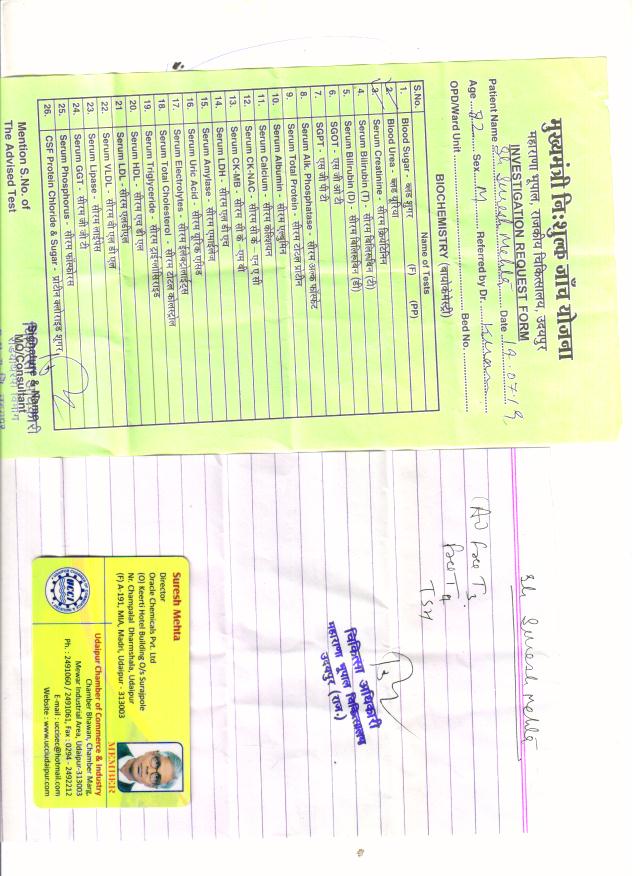 मुख्यमंत्री नि:शुल्क जाँच योजना
महाराणा भूपाल, राजकीय चिकित्सालय, उदयपुर
INVESTIGATION REQUEST FORM
Patient Name Sh Suresh Mehta Date 19.07.19
Age 72 Sex M Referred by Dr.
OPD/Ward Unit Bed No.
BIOCHEMISTRY (बायोकेमेस्ट्री)
S.No. Name of Tests
1. Blood Sugar - ब्लड शुगर (F) (PP)
2. Blood Urea - ब्लड यूरिया
3. Serum Creatinine - सीरम क्रियेटिनिन
4. Serum Bilirubin (T) - सीरम बिलिरूबिन (टी)
5. Serum Bilirubin (D) - सीरम बिलिरूबिन (डी)
6. SGOT - एस जी ओ टी
7. SGPT - एस जी पी टी
8. Serum Alk. Phosphatase - सीरम अल्क फोस्फेट
9. Serum Total Protein - सीरम टोटल प्रोटीन
10. Serum Albumin - सीरम एल्बुमिन
11. Serum Calcium - सीरम कैल्शियम
12. Serum CK-NAC - सीरम सी के - एन ए सी
13. Serum CK-MB - सीरम सी के - एम बी
14. Serum LDH - सीरम एल डी एच
15. Serum Amylase - सीरम एमाईलेज
16. Serum Uric Acid - सीरम यूरिक एसिड
17. Serum Electrolytes - सीरम इलेक्ट्रोलाइट्स
18. Serum Total Cholesterol - सीरम टोटल कोलस्ट्रोल
19. Serum Triglyceride - सीरम ट्राईग्लिसिराइड
20. Serum HDL - सीरम एच डी एल
21. Serum LDL - सीरम एलडीएल
22. Serum VLDL - सीरम वी एल डी एल
23. Serum Lipase - सीरम लाइपेस
24. Serum GGT - सीरम जी जी टी
25. Serum Phosphorus - सीरम फोस्फोरस
26. CSF Protein Chloride & Sugar - प्रोटीन क्लोराइड शुगर
Mention S.No. of
The Advised Test
Signature & Name
MO/Consultant
Sh Suresh Mehta
Free T3
Free T4
TSH
चिकित्सा अधिकारी
महाराणा भूपाल चिकित्सालय
उदयपुर (राज.)
Suresh Mehta
Director
Oracle Chemicals Pvt. Ltd
(O) Keerti Hotel Building O/s Surajpole
Nr. Champalal Dharmshala, Udaipur
(F) A-191, MIA, Madri, Udaipur - 313003
MEMBER
UCCI
Udaipur Chamber of Commerce & Industry
Chamber Bhawan, Chamber Marg,
Mewar Industrial Area, Udaipur-313003
Ph. : 2491060 / 2491061, Fax : 0294 - 2492212
E-mail : uccisec@hotmail.com
Website : www.ucciudaipur.com